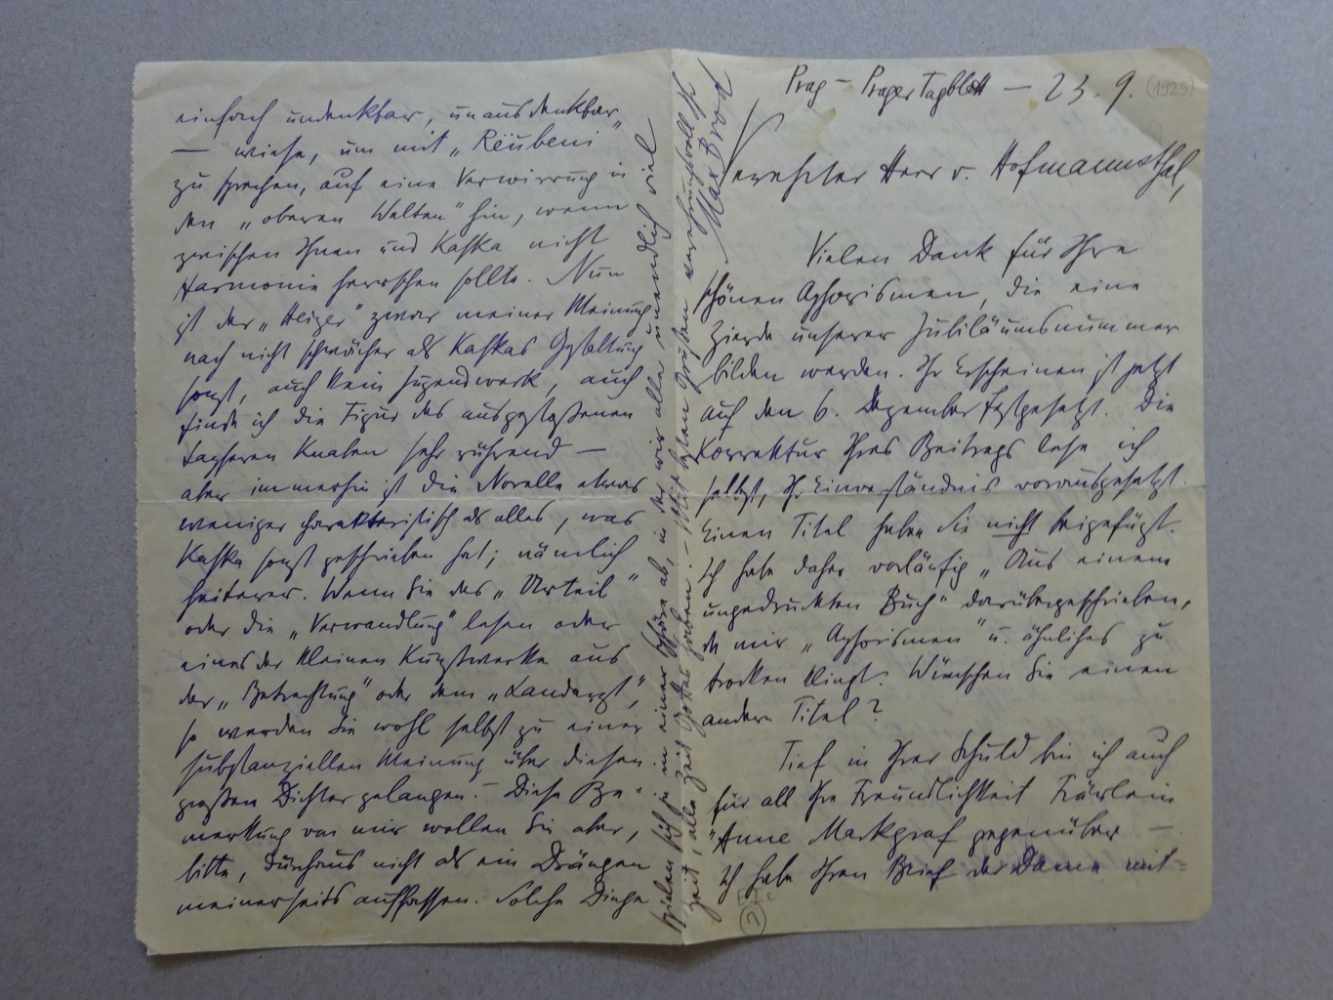 Prag – Prager Tagblatt – 23. 9. (1925)
Verehrter Herr v. Hofmannsthal,
Vielen Dank für Ihre
schönen Aphorismen, die eine
Zierde unserer Jubiläumsnummer
bilden werden. Ihr Erscheinen ist jetzt
auf den 6. Dezember festgesetzt. Die
Korrektur Ihres Beitrags lese ich
selbst, Ihr Einverständnis vorausgesetzt.
Einen Titel haben Sie nicht beigefügt.
Ich habe daher vorläufig „Aus einem
ungedruckten Buch“ darübergeschrieben,
da mir „Aphorismen“ u. ähnliches zu
trocken klingt. Wünschen Sie einen
andern Titel?
Tief in Ihrer Schuld bin ich auch
für all Ihre Freundlichkeit Fräulein
Anne Markgraf gegenüber –
Ich habe Ihren Brief der Dame mit-
einfach undenkbar, unausdenkbar
– wiese, um mit „Reubeni“
zu sprechen, auf eine Verwirrung in
den „oberen Welten“ hin, wenn
zwischen Ihnen und Kafka nicht
Harmonie herrschen sollte. Nun
ist der „Heizer“ zwar meiner Meinung
nach nicht schwächer als Kafkas Gestaltung
sonst, auch kein Jugendwerk, auch
finde ich die Figur des ausgestoßenen
tapferen Knaben sehr rührend –
aber immerhin ist die Novelle etwas
weniger charakteristisch als alles, was
Kafka sonst geschrieben hat; nämlich
heiterer. Wenn Sie das „Urteil“
oder die „Verwandlung“ lesen oder
eines der kleinen Kunstwerke aus
der „Betrachtung“ oder dem „Landarzt“,
so werden Sie wohl selbst zu einer
substanziellen Meinung über diesen
großen Dichter gelangen. – Diese Be-
merkung von mir wollen Sie aber,
bitte, durchaus nicht als ein Drängen
meinerseits auffassen. Solche Dinge
spielen sich ja in einer Sphäre ab, in der wir alle unendlich viel
Zeit, alle Zeit Gottes haben. – Mit besten Grüßen verehrungsvoll Ihr
Max Brod